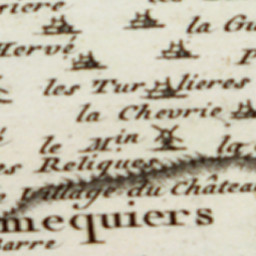 la
Hervé
les Turlieres
la Chevrie
le Min
la
Reliques
Village du Château
mequiers
Barre